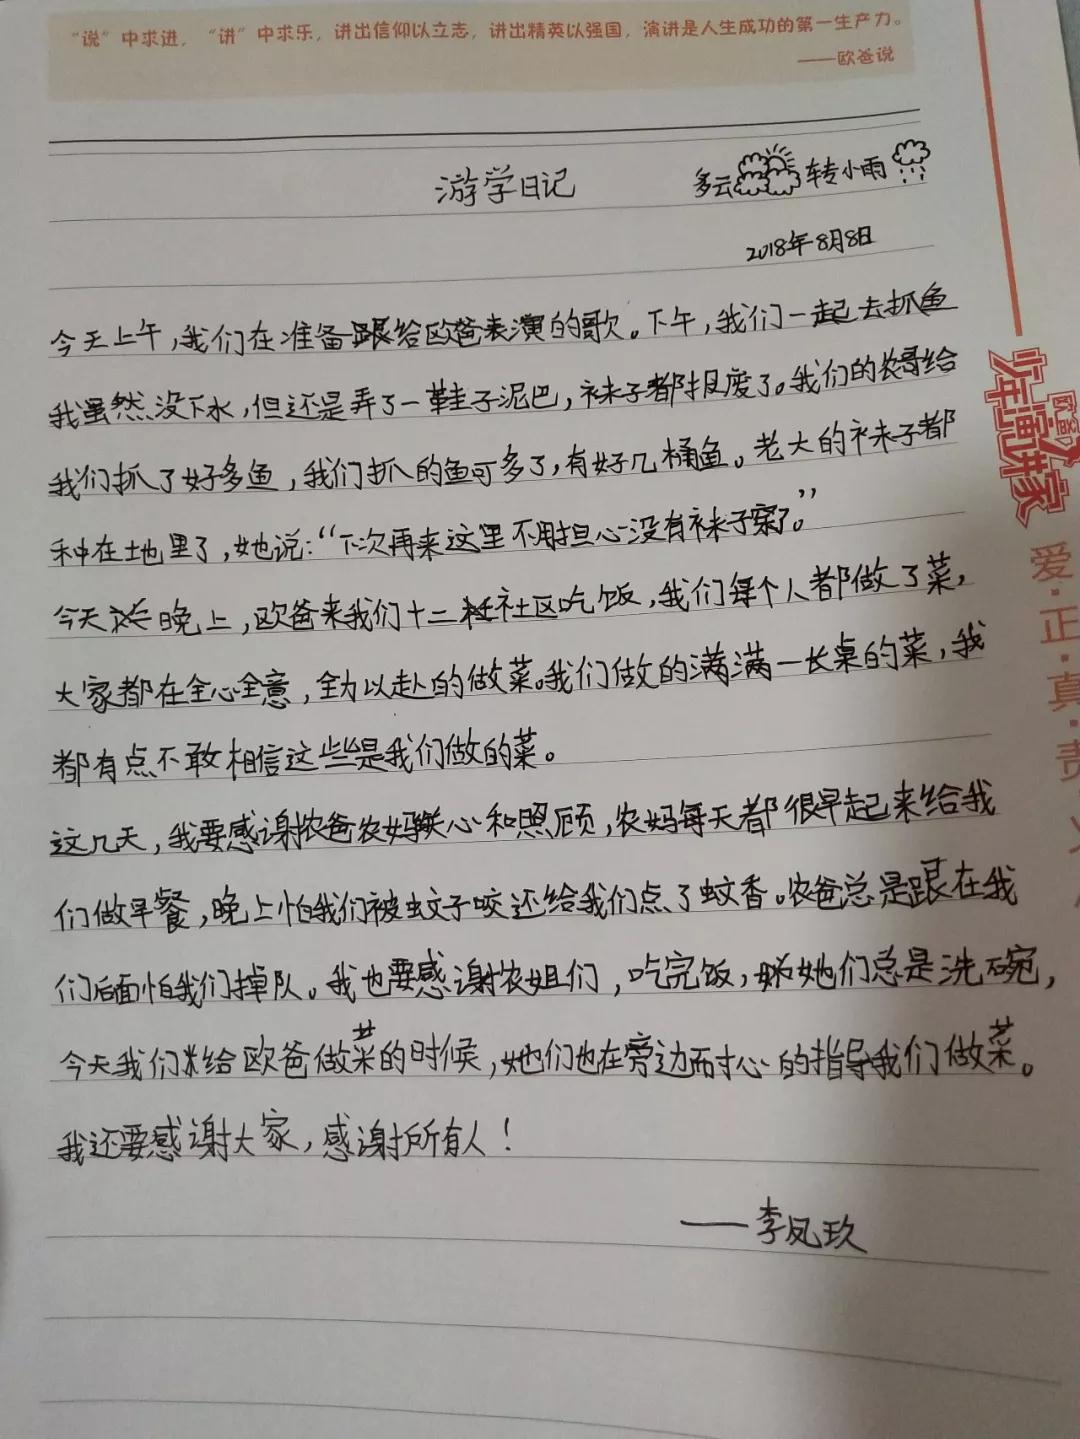 “说”中求进，“讲”中求乐，讲出信仰以立志，讲出精英以强国，演讲是人生成功的第一生产力。
——欧爸说
游学日记
多云 转小雨
2018年8月8日
今天上午，我们在准备跟给欧爸表演的歌。下午，我们一起去抓鱼
我虽然没下水，但还是弄了一鞋子泥巴，袜子都报废了。我们的农哥给
我们抓了好多鱼，我们抓的鱼可多了，有好几桶鱼。老大的袜子都
种在地里了，她说：“下次再来这里不用担心没有袜子穿了。”
今天晚上，欧爸来我们十二社区吃饭，我们每个人都做了菜，
大家都在全心全意，全力以赴的做菜。我们做的满满一长桌的菜，我
都有点不敢相信这些是我们做的菜。
这几天，我要感谢农爸农妈关心和照顾，农妈每天都很早起来给我
们做早餐，晚上怕我们被蚊子咬还给我们点了蚊香。农爸总是跟在我
们后面怕我们掉队。我也要感谢农姐们，吃完饭，她们总是洗碗，
今天我们给欧爸做菜的时候，她们也在旁边耐心的指导我们做菜。
我还要感谢大家，感谢所有人！
——李凤玖
欧爸
少年演讲家
爱·正·真·责